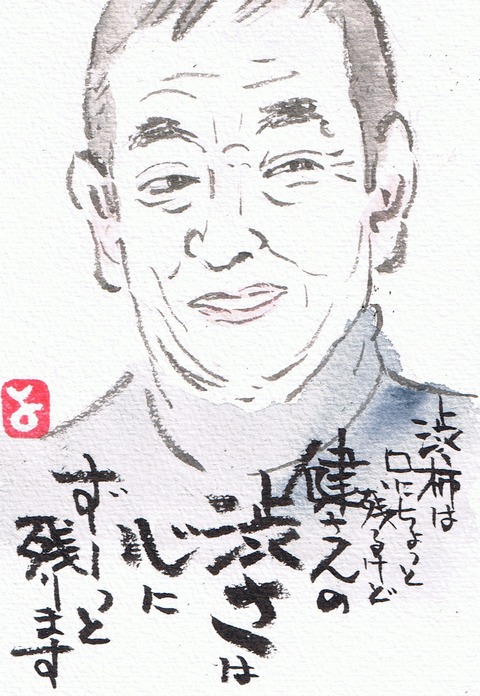 渋柿は
口にちょっと
残るけど
健さんの
渋さは
心に
ずーっと
残ります
と